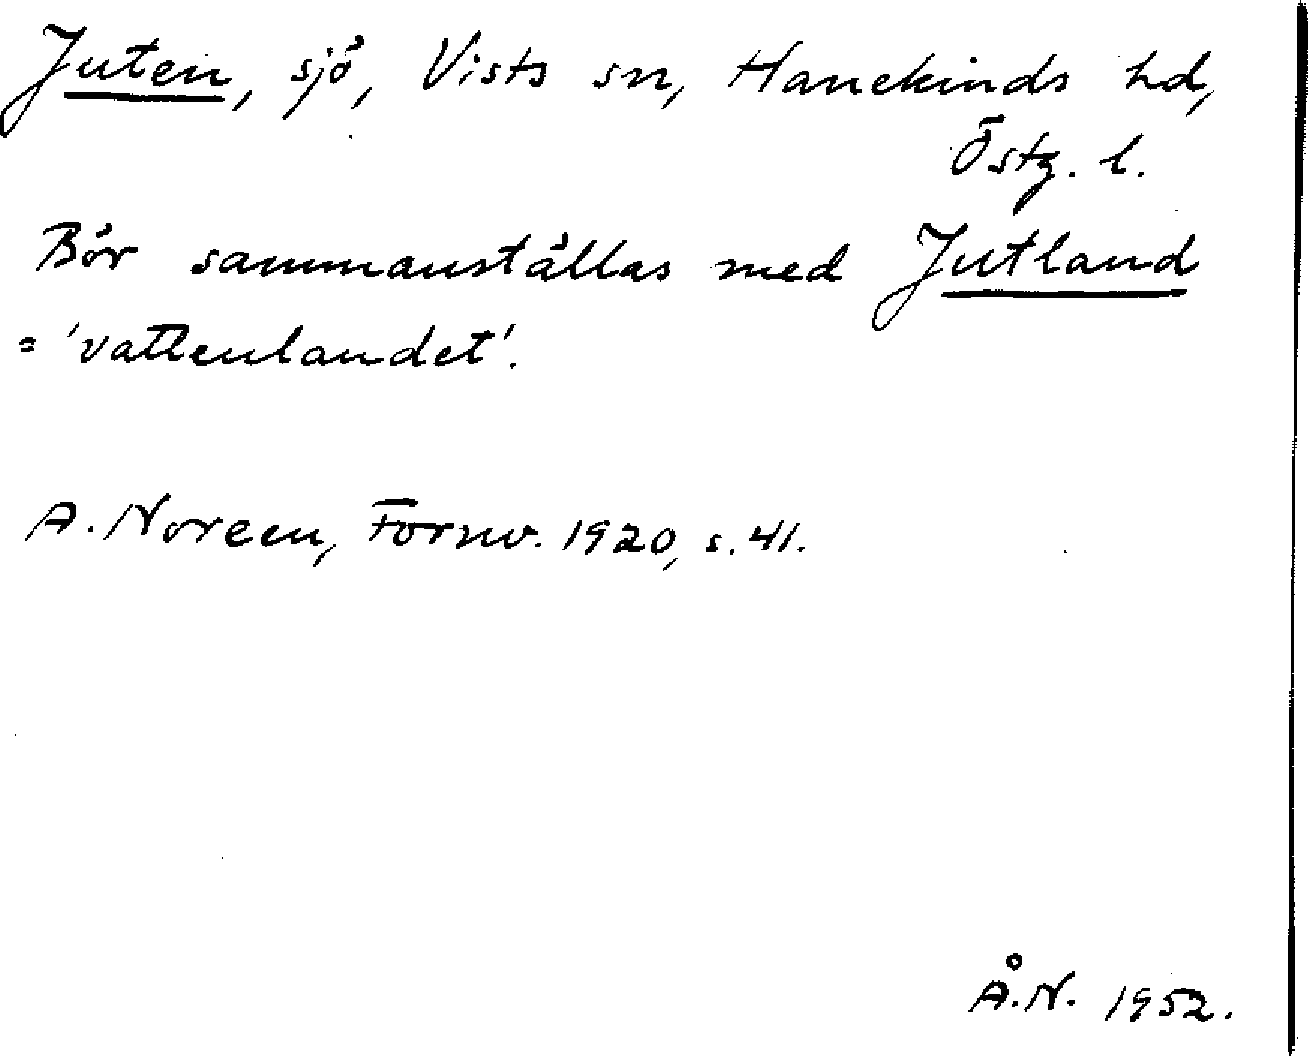 Juten, sjö, Vists sn, Hanekinds hd,
Östg. l.
Bör sammanställas med Jutland
= 'vattenlandet'.
A. Noreen, Fornv. 1920, s. 41.
Å.N. 1952.